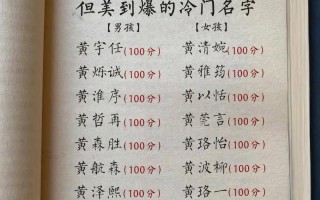 但美到爆的冷门名字
【男孩】 【女孩】
黄宇任(100分) 黄清婉(100分)
黄烁诚(100分) 黄雅筠(100分)
黄淮序(100分) 黄以恬(100分)
黄哲再(100分) 黄莞言(100分)
黄森胜(100分) 黄珞怡(100分)
黄航森(100分) 黄波柳(100分)
黄泽熙(100分) 黄珞一(100分)